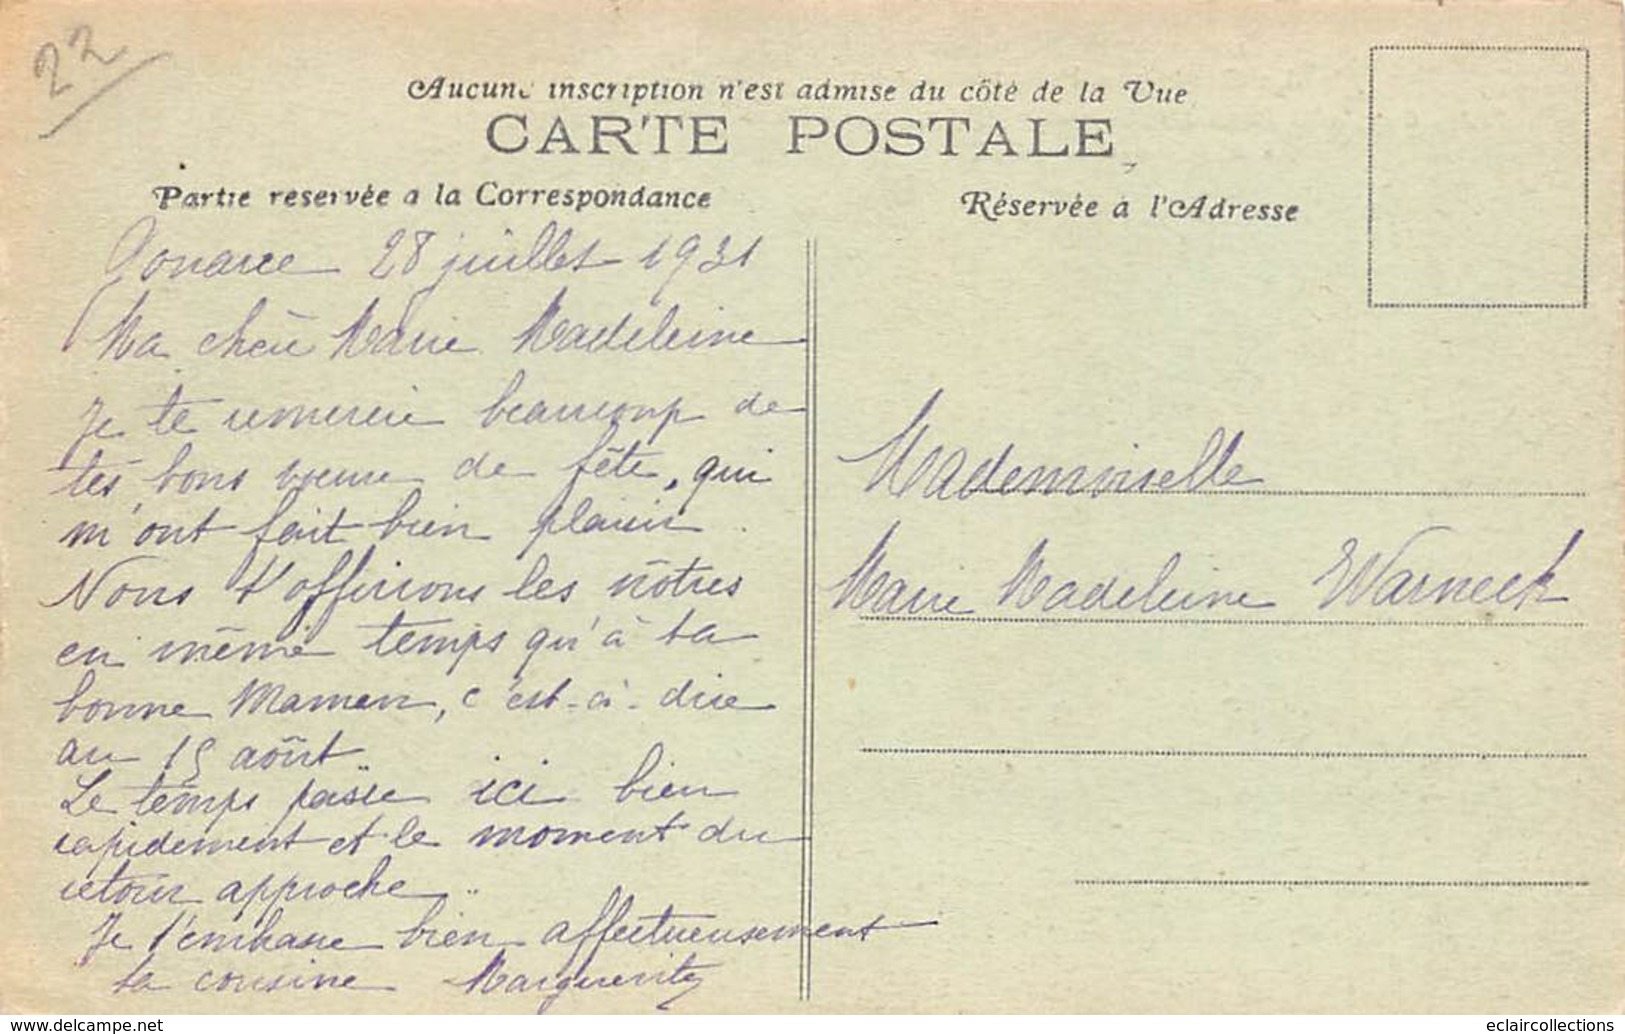 22
Aucune inscription n'est admise du côté de la Vue
CARTE POSTALE
Partie reservée a la Correspondance
Réservée à l'Adresse
Gouarec 28 juillet 1931
Ma chère Marie Madeleine
Je te remercie beaucoup de
tes bons voeux de fête, qui
m'ont fait bien plaisir.
Nous t'offrirons les nôtres
en même temps qu'à ta
bonne Maman, c'est-à-dire
au 15 août.
Le temps passe ici bien
rapidement et le moment du
retour approche..
Je t'embrasse bien affectueusement
ta cousine Marguerite
Mademoiselle
Marie Madeleine Warneck
www.delcampe.net
eclaircollections